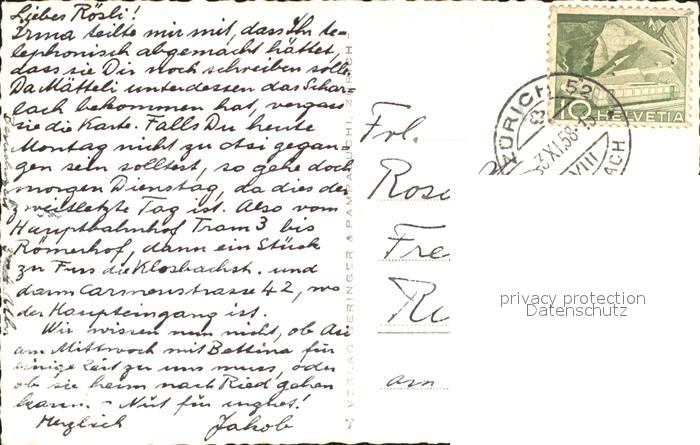 Liebes Rösli!
Irma teilte mir mit, dass Ihr te=
lephonisch abgemacht hättet,
dass sie Dir noch schreiben solle.
Da Mätteli unterdessen das Schar=
lach bekommen hat, vergass
sie die Karte. Falls Du heute
Montag nicht zu Asi gegan
gen sein solltest, so gehe doch
morgen Dienstag, da dies der
zweitletzte Tag ist. Also vom
Hauptbahnhof Tram 3 bis
Römerhof, dann ein Stück
zu Fuss die Klosbachst. und
dann Carmenstrasse 42, wo
der Haupteingang ist.
Wir wissen nun nicht, ob Asi
am Mittwoch mit Bettina für
einige Zeit zu uns muss, oder
ob sie heim nach Ried gehen
kann. - Nüt für unguet!
Herzlich Jakob
Frl.
Rose
Fre
am
10 HELVETIA
ZÜRICH 52
XI.58-
VIII
ACH
privacy protection
Datenschutz